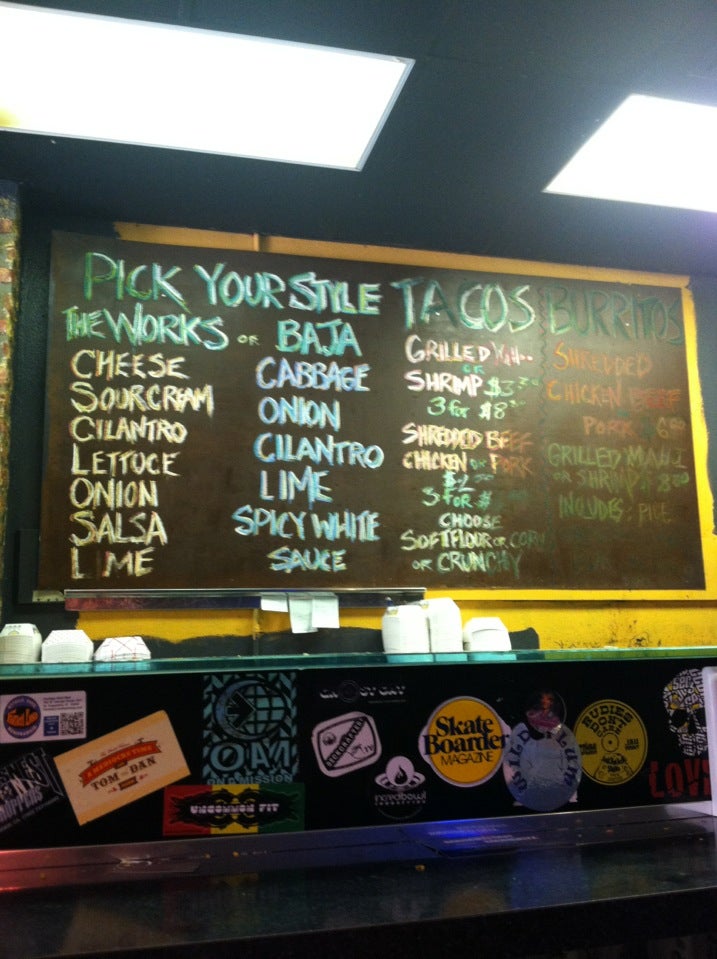 PICK YOUR STYLE
THE WORKS OR BAJA
CHEESE
SOUR CREAM
CILANTRO
LETTUCE
ONION
SALSA
LIME
CABBAGE
ONION
CILANTRO
LIME
SPICY WHITE
SAUCE
TACOS
GRILLED
OR
SHRIMP $3
3 FOR $8
SHREDDED BEEF
CHICKEN OR PORK
3 FOR $
CHOOSE
SOFT FLOUR OR CORN
OR CRUNCHY
BURRITOS
SHREDDED
CHICKEN BEEF
PORK
GRILLED MAHI
OR SHRIMP $8
INCLUDES:
A MEDIOCRE TIME
TOM AND DAN
OAM
ON A MISSION
UNCOMMON FIT
Skate
Boarder
MAGAZINE
RUDIES
DON'T
CARE
LOVE